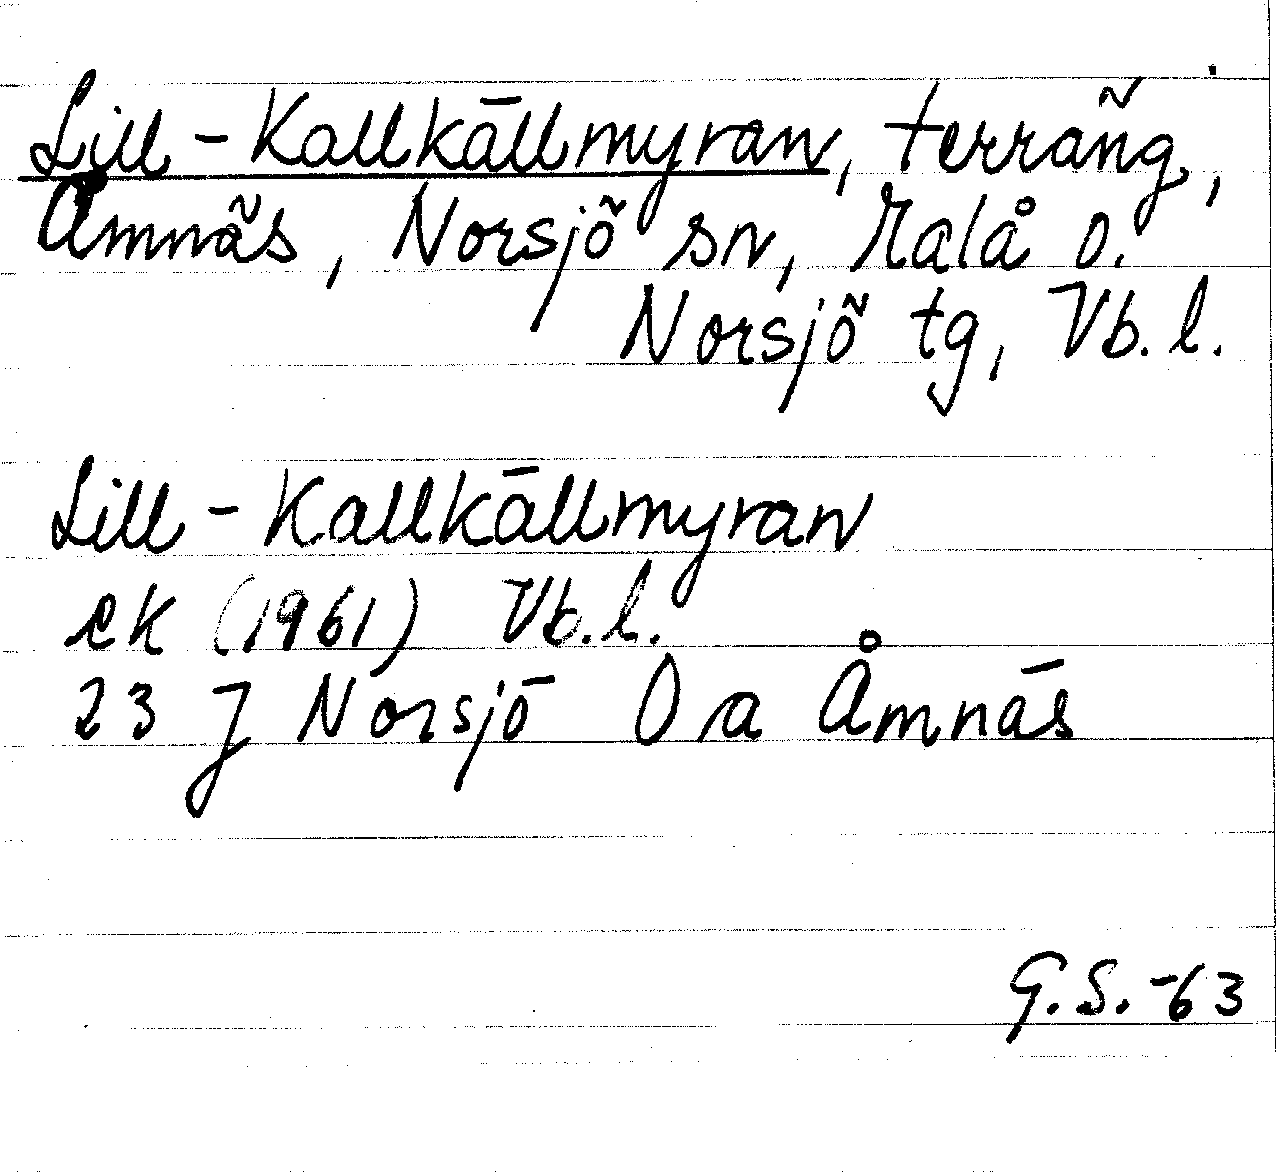 Lill-Kallkällmyran, terräng,
Åmnäs, Norsjö sn, Malå o.
Norsjö tg, Vb. l.
Lill-Kallkällmyran
ek (1961) Vb.l.
23 J Norsjö 0 a Åmnäs
G.S.-63